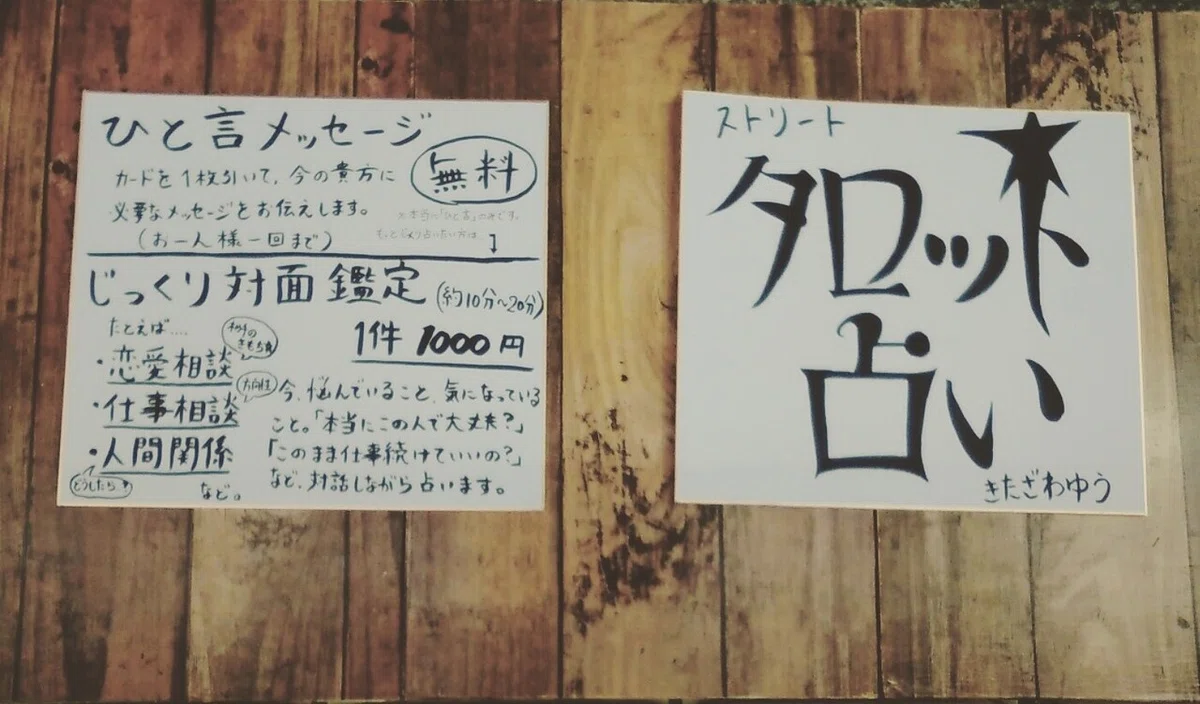 ひと言メッセージ
無料
カードを1枚引いて、今の貴方に
必要なメッセージをお伝えします。
(お一人様一回まで)
※本当に「ひと言」のみです。
もっとじっくり占いたい方は↓
じっくり対面鑑定(約10分〜20分)
たとえば....
1件 1000円
・恋愛相談
・仕事相談
方向性
・人間関係
どうしたら..?
など。
今、悩んでいること、気になっている
こと。「本当にこの人で大丈夫?」
「このまま仕事続けていいの?」
など、対話しながら占います。
ストリート
タロット
占い
きたざわゆう